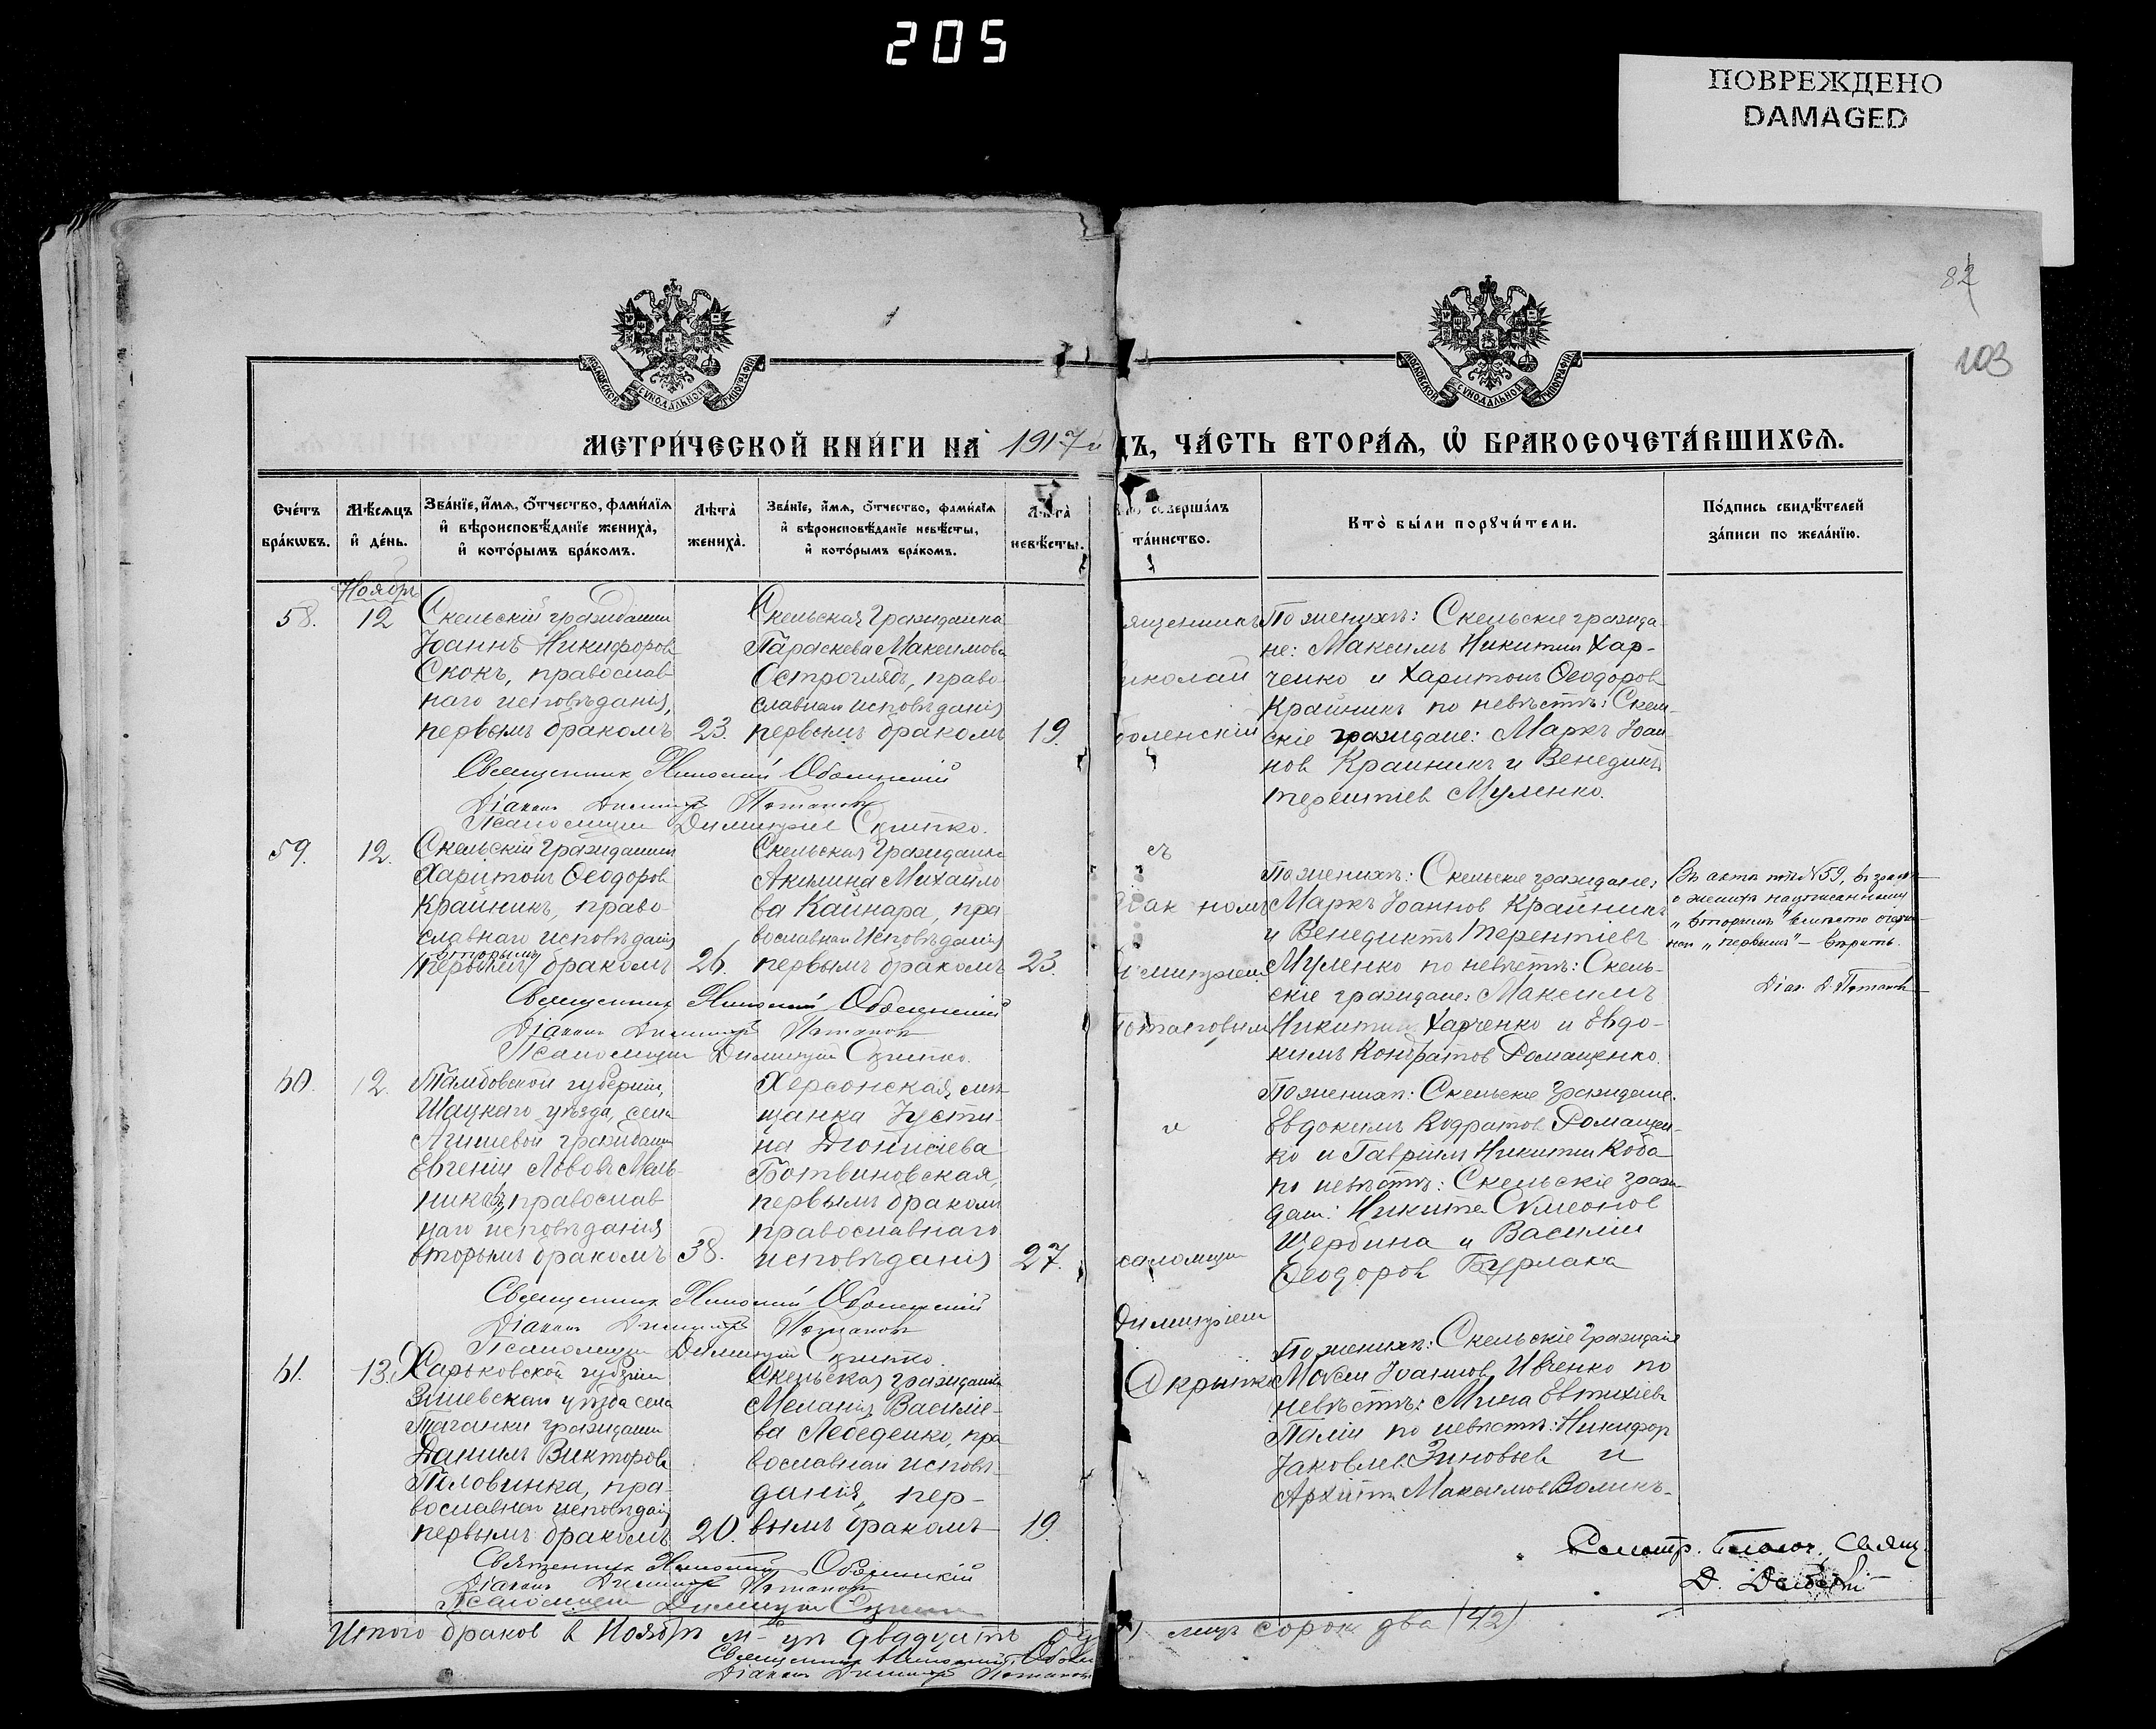 205
ПОВРЕЖДЕНО
DAMAGED
82
103
МОСКОВСКОЙ СѴНОДАЛЬНОЙ ТИПОГРАФІИ
МОСКОВСКОЙ СѴНОДАЛЬНОЙ ТИПОГРАФІИ
МЕТРИ́ЧЕСКОЙ КНИ́ГИ НА 1917 й
ДЪ, ЧА́СТЬ ВТОРА́Я, Ѡ҆ БРАКОСОЧЕТА́ВШИХСЯ.
Сче́тъ бра́кѡвъ.
Мѣ́сяцъ и҆ де́нь.
Зва́нїе, и҆́мя, ѻ҆́тчество, фами́лїя и҆ вѣроисповѣ́данїе жениха̀, и҆ кото́рымъ бра́комъ.
Лѣта̀ жениха̀.
Зва́нїе, и҆́мя, ѻ҆́тчество, фами́лїя и҆ вѣроисповѣ́данїе невѣ́сты, и҆ кото́рымъ бра́комъ.
Лѣта̀ невѣ́сты.
соверша́лъ та́инство.
Кто̀ бы́ли порꙋчи́тели.
По́дпись свидѣ́телей за́писи по жела́нїю.
Ноябрь
58.
12
Скельскій гражданин
Іоаннъ Никифоров
Скокъ, православ-
наго исповѣданія,
первымъ бракомъ
23.
Скельская Гражданка
Параскева Максимова
Остроглядъ, право
славнаго исповѣданія
первымъ бракомъ
19.
ященникъ
иколай
боленскій
По женихѣ: Скельскіе гражда-
не: Максимъ Никитин Хар-
ченко и Харитонъ Ѳеодоров
Крайникъ по невѣстѣ: Скель-
скіе граждане: Маркъ Іоан
нов Крайникъ и Венедиктъ
Терентіев Муленко.
Священник Николай Оболенскій
Діаконъ Димитрій Потапов
Псаломщик Димитрий Скрипко.
59.
12.
Скельскій Гражданин
Харитонъ Ѳеодоров
Крайникъ, право-
славнаго исповѣданія
вторымъ
/первымъ/ бракомъ
26.
Скельская Гражданка
Акилина Михайло
ва Кайнара, пра
вославнаго Исповѣданія
первымъ бракомъ
23.
съ
иак номъ
Димитріем
Потаповым
По женихѣ: Скельскіе граждане:
Маркъ Іоаннов Крайникъ
и Венедиктъ Терентіевъ
Муленко по невѣстѣ: Скель-
скіе граждане: Максимъ
Никитин Харченко и Евдо-
кимъ Кондратов Ромащенко.
Въ актѣ под №59, в графѣ
о женихѣ надписанному
„вторымъ" вмѣсто
„первымъ" – вѣрить.
Діак. Д. Потапов
Священник Николай Оболенскій
Діаконъ Димитрій Потапов
Псаломщик Димитрий Скрипко.
60.
12.
Тамбовской губерніи,
Шацкаго уѣзда, села
Агишевой гражданин
Евгеній Львовъ Мель-
никовъ, православ
наго исповѣданія
вторымъ бракомъ
38.
Херсонская мѣ-
щанка Іусти-
на Діонисіева
Ботвиновская,
первымъ бракомъ
православнаго
исповѣданія
27.
и
саломщик
Димитріем
Скрипко
По женихѣ: Скельскіе Граждане.
Евдокимъ Кодратов Ромащен-
ко и Гавріилъ Никитин Коба
по невѣстѣ: Скельскіе граж-
дан: Никита Симеонов
Щербина и Василій
Ѳеодоров Бурлака
Священник Николай Оболенскій
Діаконъ Димитрій Потапов
Псаломщик Димитрий Скрипко.
61.
13.
Харьковской губерніи
Зміевскаго уѣзда села
Таганки гражданин
Даніилъ Викторов
Половинка, пра-
вославнаго исповѣданія
первымъ бракомъ
20.
Скельская гражданка
Меланія Василіе-
ва Лебеденко, пра
вославнаго исповѣ-
данія, пер-
вымъ бракомъ
19.
По женихѣ: Скельскіе Граждане
Моѵсей Іоаннов Ивченко по
невѣстѣ: Мина Евтихіев
Палій по невѣстѣ: Никифор
Іаковлев Зиновьев и
Архипъ Максимов Воликъ.
Священник Николай Оболенскій
Діаконъ Димитрій Потапов
Псаломщик Димитрий Скрипко
Смотр. Благоч. Свящ.
Д.
Итого браков в Ноябрѣ м-цѣ двадцать од
) лицъ сорок два (42)
Священник Николай Оболе
Діаконъ Димитрій Потапов